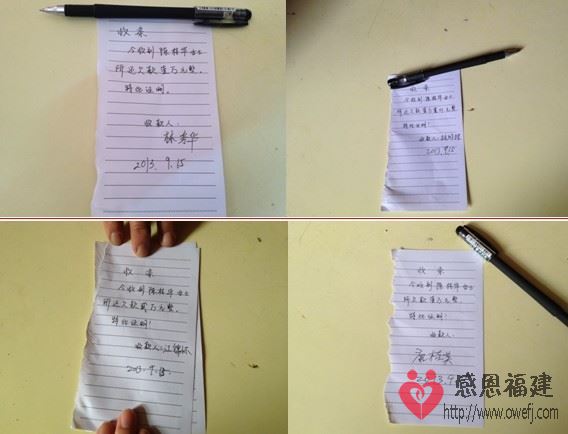 收条
今收到陈桂华女士
所还欠款壹万元整,
特此证明。
收款人:
林秀华
2013.9.15
收条
今收到陈桂华女士
特此证明!
收款人:
2013.9.15
收条
今收到陈桂华女士
所还欠款贰万元整,
特此证明!
收款人:
2013.9.15.
收条
今收到陈桂华女士
所欠款壹万元整,
特此证明!
收款人:
感恩福建
http://www.owefj.com